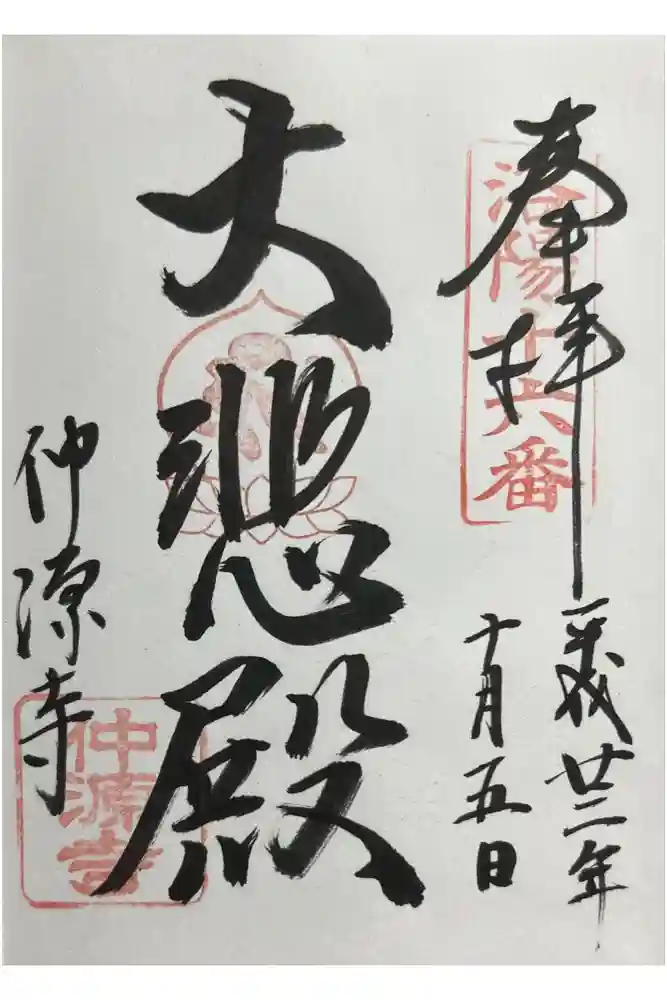 奉拝
洛陽十六番
平成廿二年
十月五日
大悲殿
仲源寺
仲源寺